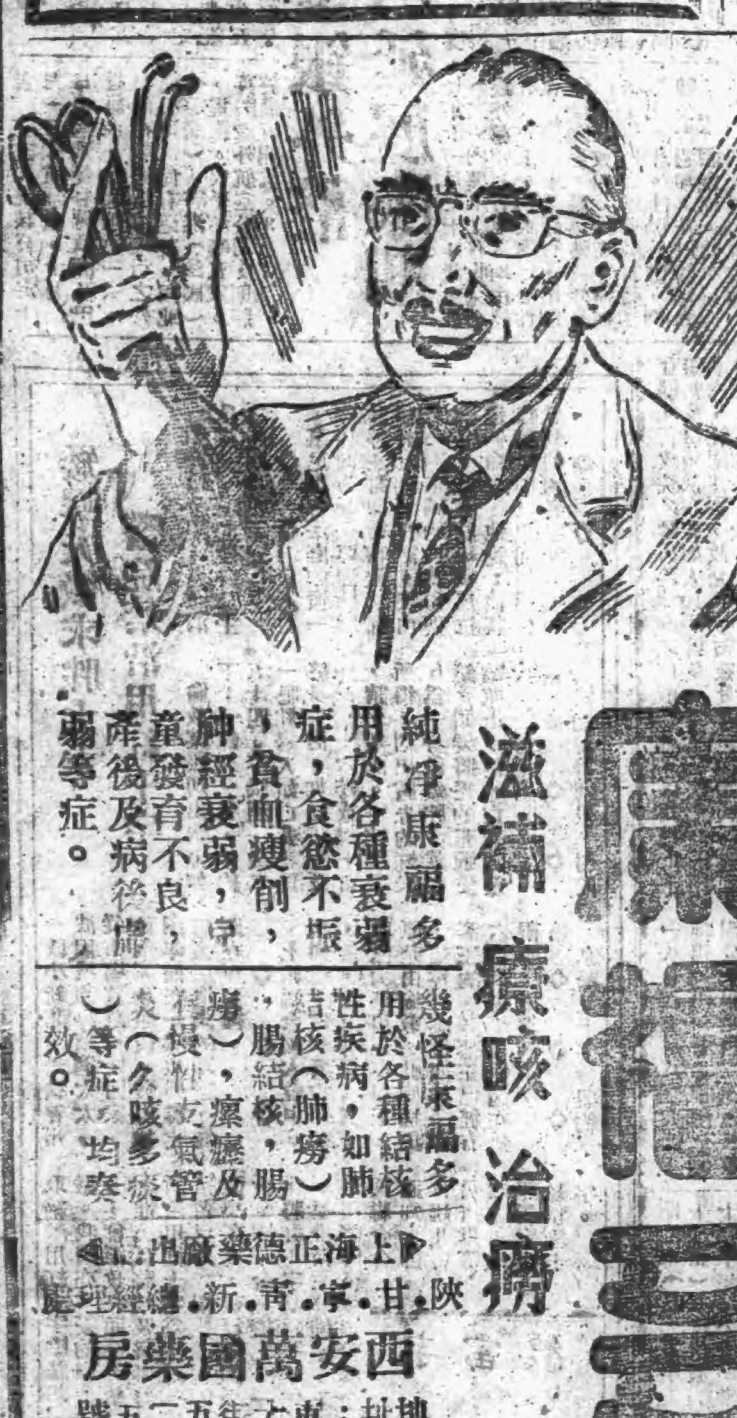 康福多
滋補 療咳 治癆
純淨康福多
用於各種衰弱
症，食慾不振
，貧血瘦削，
神經衰弱，兒
童發育不良，
產後及病後虛
弱等症。
幾怪康福多
用於各種結核
性疾病，如肺
結核（肺癆）
，腸結核，腸
癆），瘰癧及
慢性支氣管
炎（久咳多痰
）等症 均奏
效。
上海正德藥廠出品
陝．甘．寧．青．新．總經理處
西安萬國藥房
地址：東大街五二五號